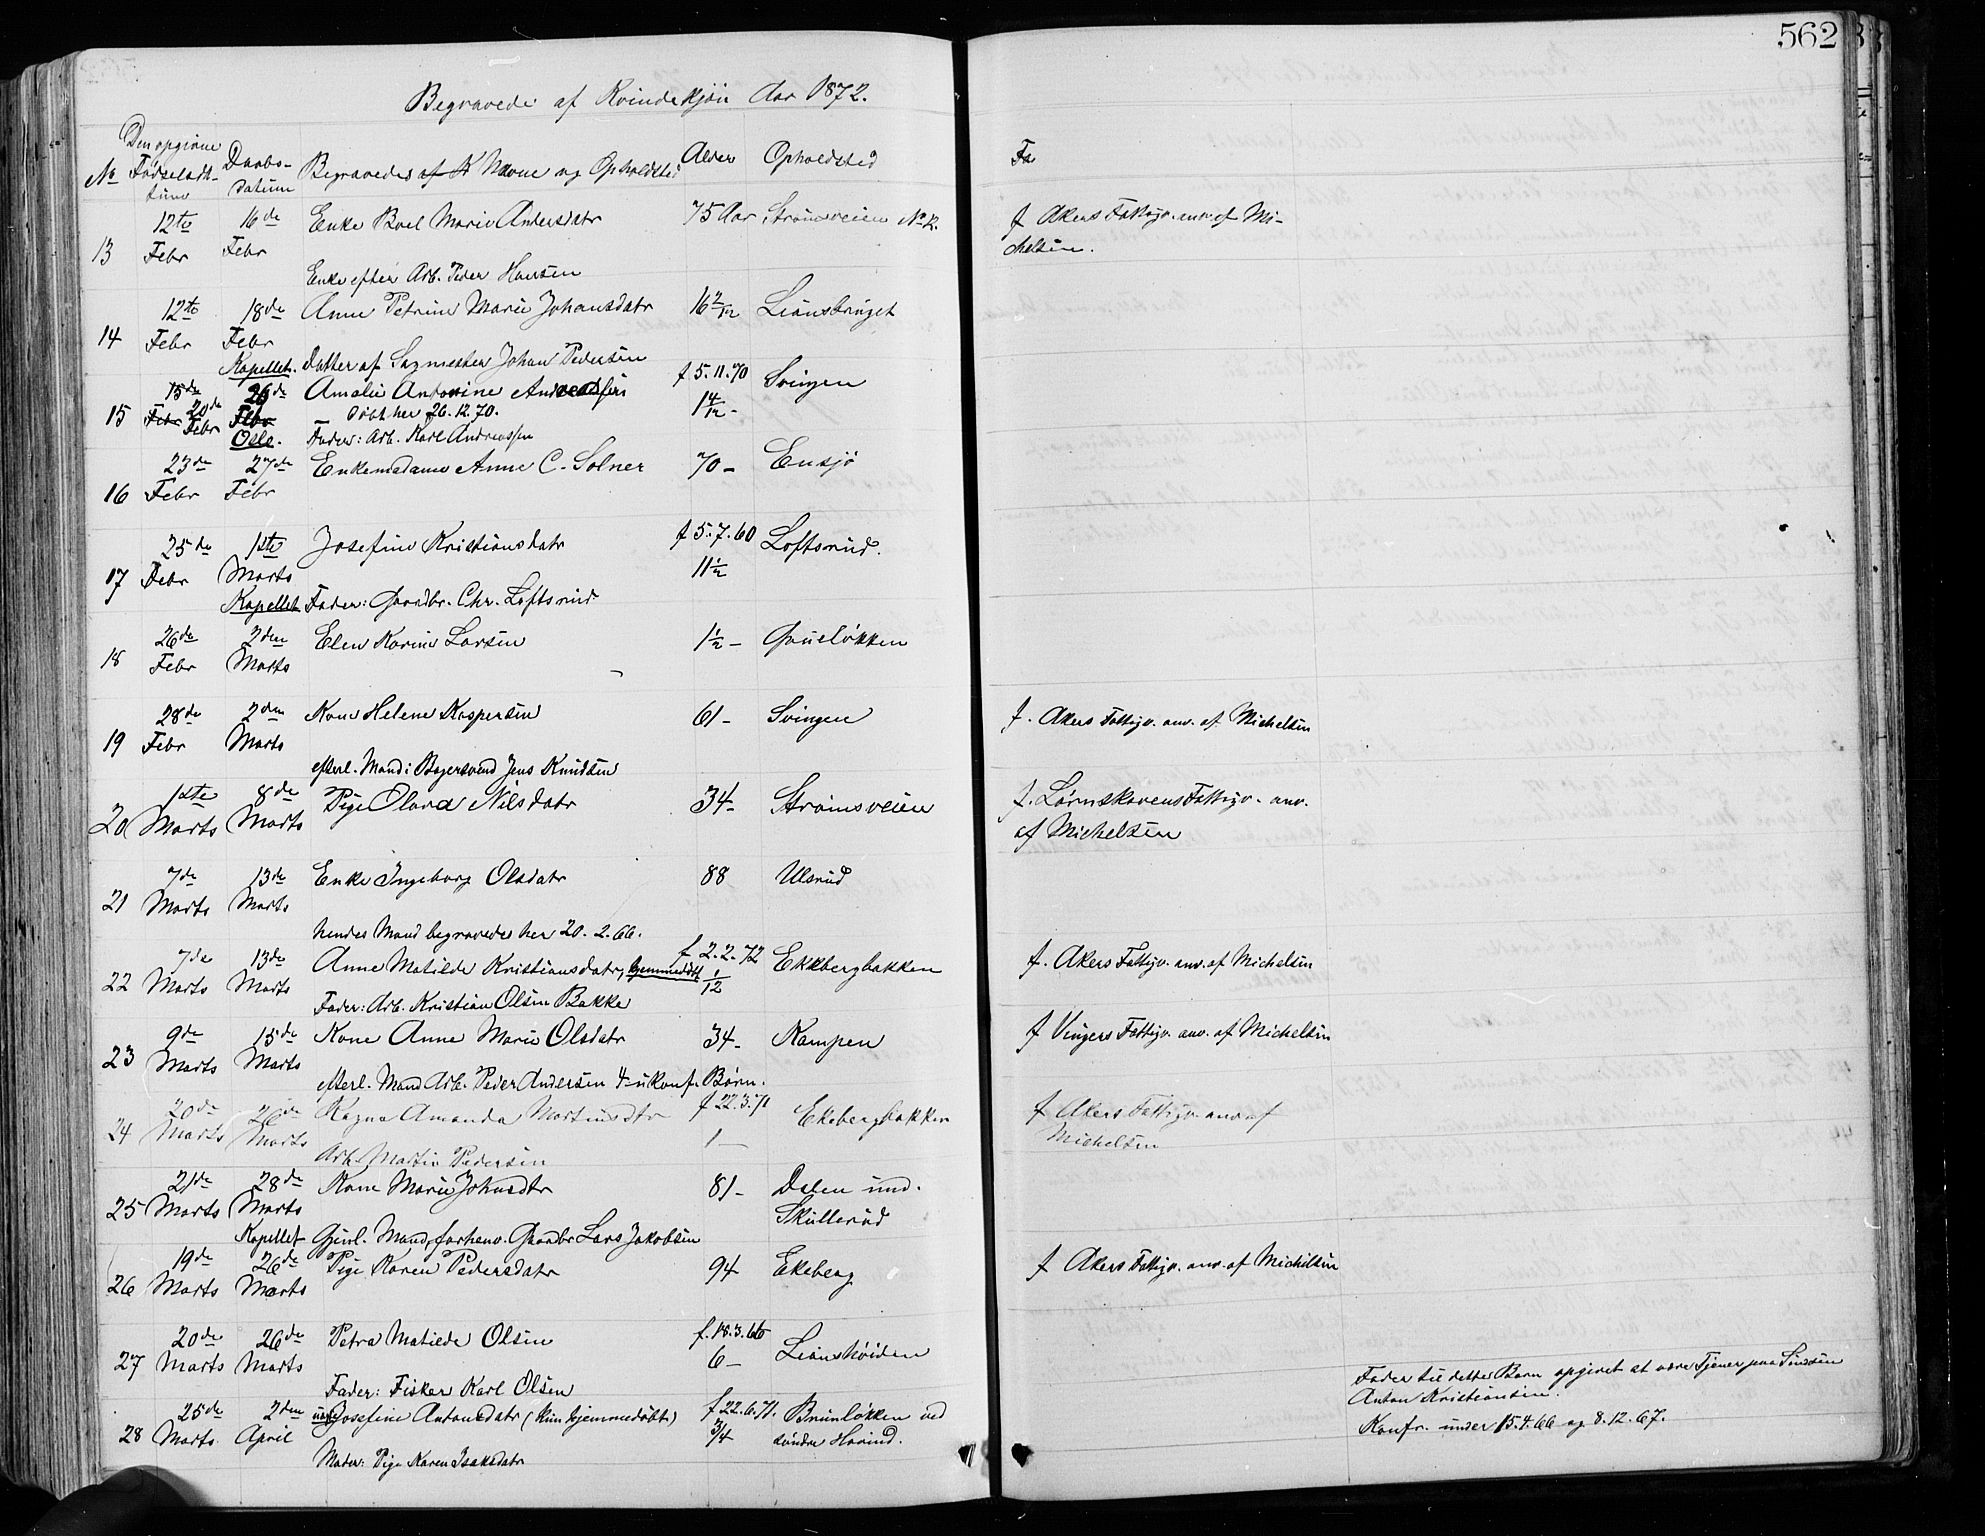 562
Begravede af Kvindekjön Aar 1872.
No Den opgivne Fødselsda- tum Daabs- datum Begravedes af K Navne og Opholdsted Alder Opholdsted Fa
13 12te Febr 16de Febr Enke Boel Marie Andersdatr 75 Aar Strömsveien No 12. f Akers Fattigv. anv. af Mi-
chelsen.
Enke efter Arb. Peder Hansen
14 12te Febr 18de Febr Anne Petrine Marie Johansdatr 16 2/12 Liansbruget
Kapellet. Datter af Sagmester Johan Pedersen
15 15de Febr 20de Febr 26de Febr Amalie Antonine Andreassen f 5.11.70 Svingen
Döbt her 26.12.70. 1 4/12 -
Oslo. Fader: Arb. Karl Andreassen
16 23de Febr 27de Febr Enkemadame Anne C. Solner 70 - Ensjö
17 25de Febr 1ste Marts Josefine Kristiansdatr f 5.7.60 11 1/2 Loftsrud.
Kapellet Fader: Gaardbr. Chr. Loftsrud
18 26de Febr 2den Marts Elen Karine Larsen 1 1/2 - Grusløkken
19 28de Febr 2den Marts Kone Helene Kaspersen 61 - Svingen f. Akers Fattigv. anv. af Michelsen
efterl. Mand: Bagersvend Jens Knudsen
20 1ste Marts 8de Marts Pige Olava Nilsdatr 34 - Strömsveien f. Lørnskovens Fattigv. anv.
af Michelsen
21 7de Marts 13de Marts Enke Ingeborg Olsdatr 88 Ulsrud
hendes Mand begravedes her 20.2.66.
22 7de Marts 13de Marts Anne Matilde Kristiansdatr, hjemmedöbt f 2.2.72 1/12 Ekebergbakken f. Akers Fattigv. anv. af Michelsen
Fader: Arb. Kristian Olsen Bakke
23 9de Marts 15de Marts Kone Anne Marie Olsdatr 34 - Kampen f Vingers Fattigv. anv. af Michelsen
efterl. Mand Arb. Peder Andersen 4 ukonf. Børn.
24 20de Marts 26de Marts Ragna Amanda Martinsdtr f 22.3.71 1 - Ekebergbakken f Akers Fattigv. anv. af
Michelsen
Arb. Martin Pedersen
25 21de Marts 28de Marts Kone Marie Johnsdtr 81 - Dalen und.
Skullerud
Kapellet Gjenl. Mand, forhenv. Gaardbr Lars Jakobsen
26 19de Marts 26de Marts Pige Karen Pedersdatr 94 Ekeberg f Akers Fattigv. anv. af Michelsen
27 20de Marts 26de Marts Petra Matilde Olsen f. 18.3.66 6 - Lianshöiden
Fader: Fisker Karl Olsen
28 25de Marts 2den April uægte Josefine Antonsdatr (kun hjemmedöbt) f 22.6.71. 3/4 Brunløkken ved
søndre Hovind.
Moder: Pige Karen Isaksdatr
Fader til dette Barn opgivet at være Tjener paa Sinsen
Anton Kristiansen.
Konfr. under 15.4.66 og 8.12.67.